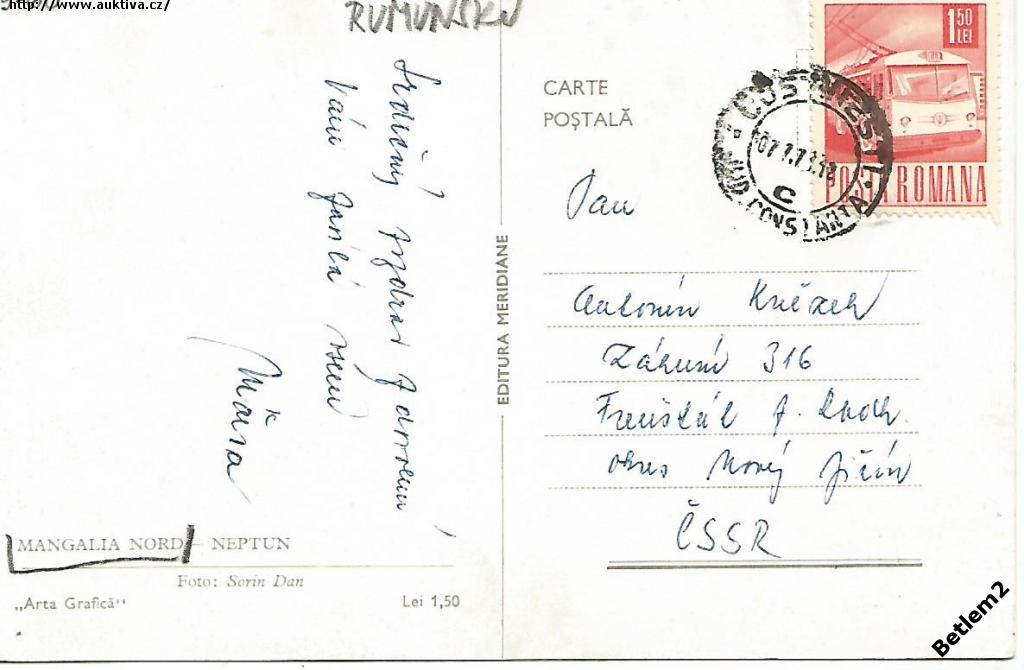 http://www.auktiva.cz/
RUMUNSKO
Srdečný pozdrav
Vám
všem
Mára
MANGALIA NORD - NEPTUN
Foto: Sorin Dan
„Arta Grafică“
Lei 1,50
EDITURA MERIDIANE
CARTE
POȘTALĂ
1 50
LEI
POSTA ROMANA
COSTINEȘTI
JUD. CONSTANTA
C
Pan
Antonín Kněžek
Záhuní 316
Frenštát p. Radh.
okres Nový Jičín
ČSSR
Betlem2